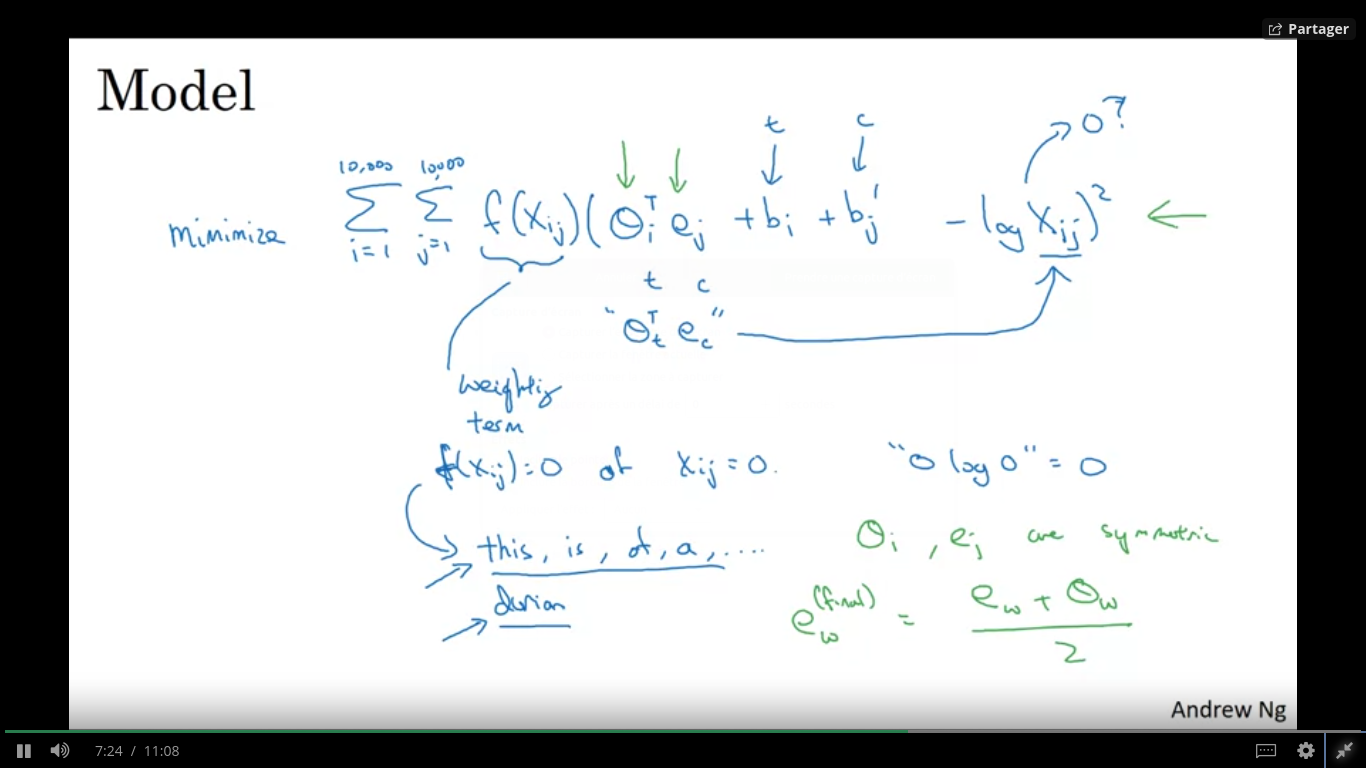 Partager
Model
minimize 10,000 Σ i=1 10,000 Σ j=1 f(Xij)(θiᵀ ej + bi + bj' - log Xij)²
t c 0?
t c
"θtᵀ ec"
weighting
term
f(Xij)=0 if Xij=0. "0 log 0" = 0
this, is, of, a, .... θi, ej are symmetric
durian
ew(final) = (ew + θw) / 2
Andrew Ng
7:24 / 11:08